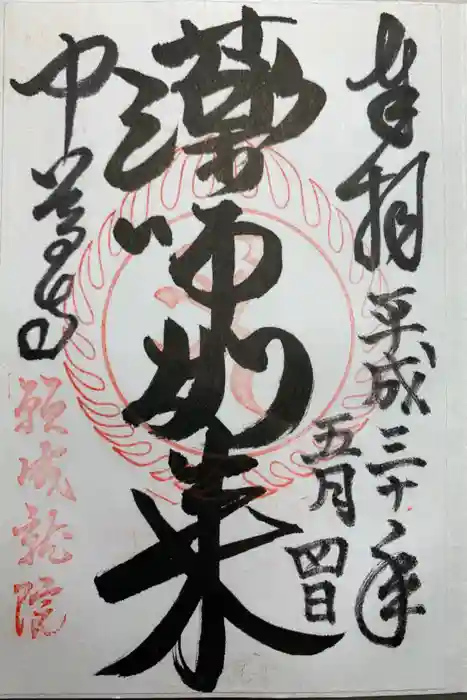 奉拝 平成三十年
五月四日
薬師如来
中尊寺
願成就院